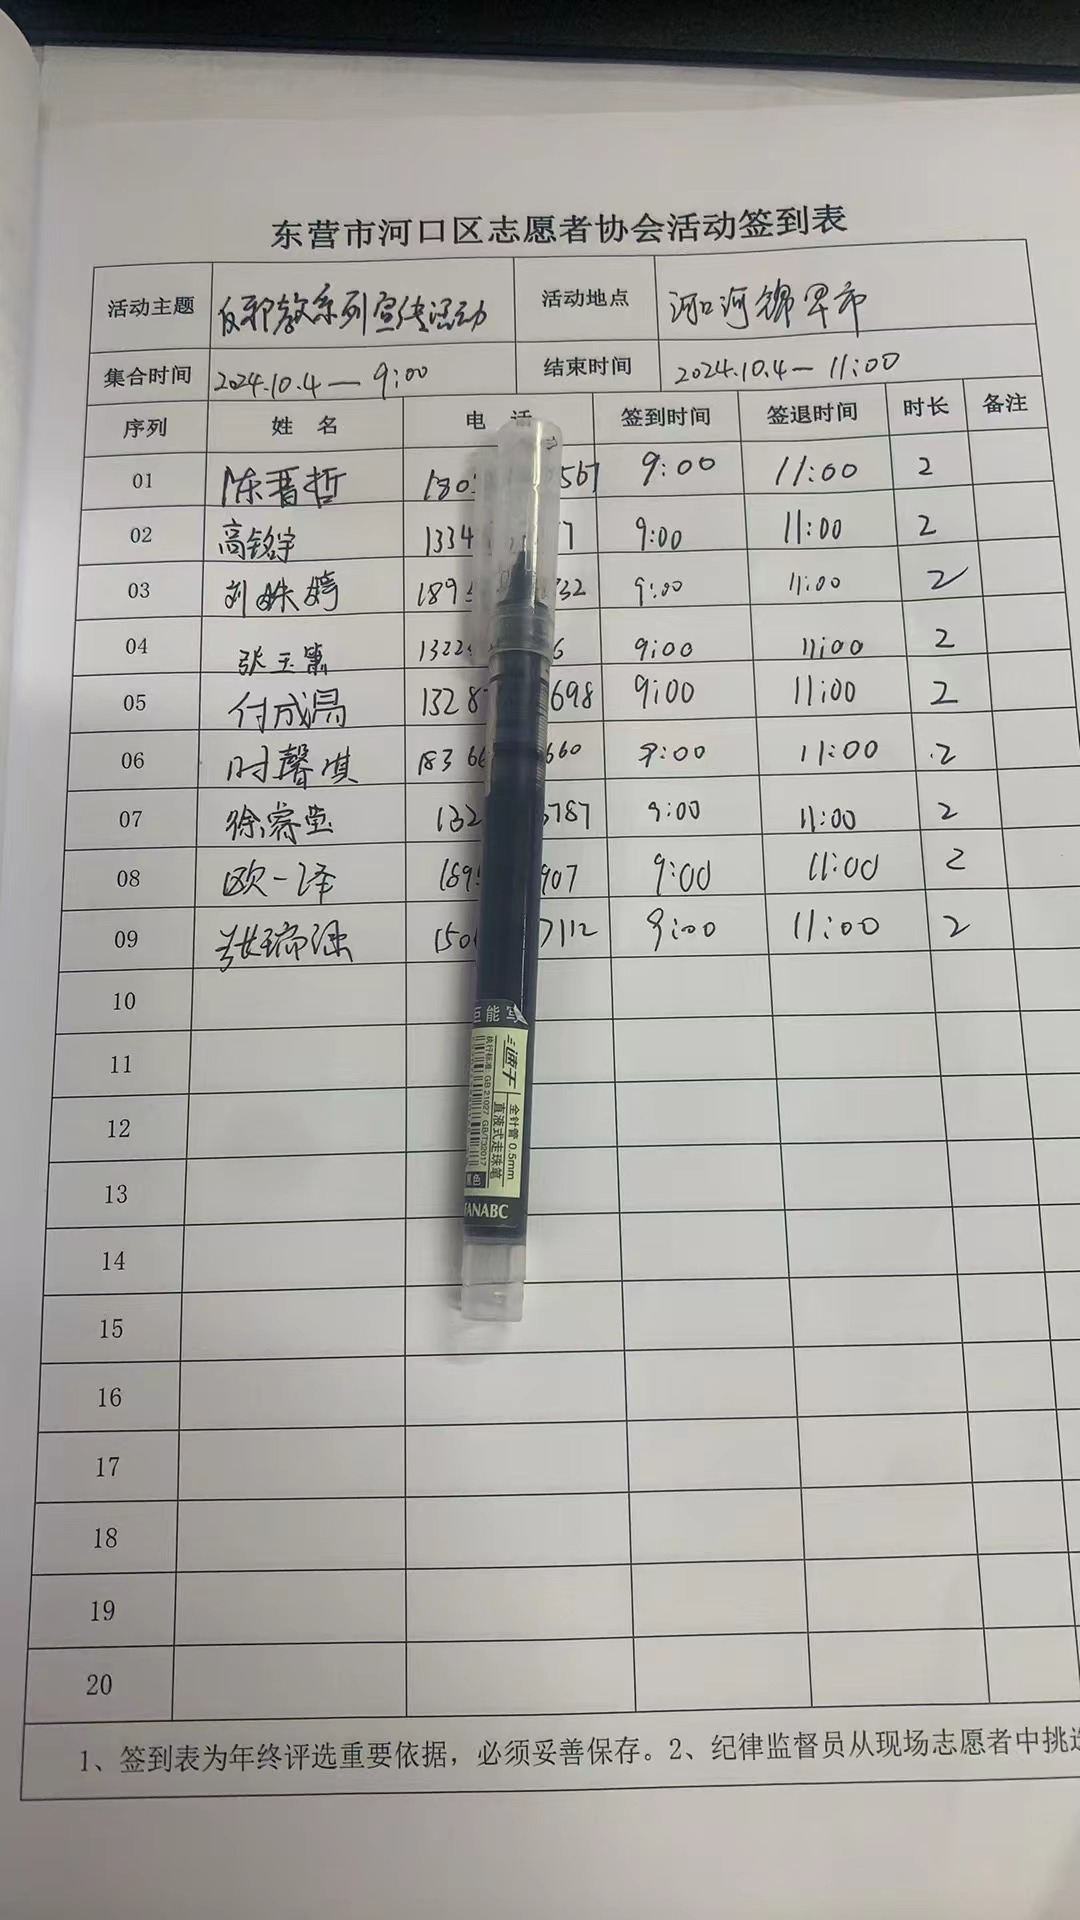 东营市河口区志愿者协会活动签到表
活动主题 反邪教系列宣传活动 活动地点 河口河锦早市
集合时间 2024.10.4 — 9:00 结束时间 2024.10.4 — 11:00
序列 姓 名 电 话 签到时间 签退时间 时长 备注
01 陈晋哲 180 567 9:00 11:00 2
02 高铭宇 1334 7 9:00 11:00 2
03 刘姝婷 189 32 9:00 11:00 2
04 张玉 1322 6 9:00 11:00 2
05 付成 1328 698 9:00 11:00 2
06 时馨淇 18366 660 9:00 11:00 2
07 徐睿莹 132 3787 9:00 11:00 2
08 欧一泽 189 907 9:00 11:00 2
09 张瑞强 150 7112 9:00 11:00 2
10
11
12
13
14
15
16
17
18
19
20
巨能写
速干
全针管 0.5mm
直液式走珠笔
执行标准: GB 21027 GB/T32017
黑色
TANABC
1、签到表为年终评选重要依据，必须妥善保存。2、纪律监督员从现场志愿者中挑选